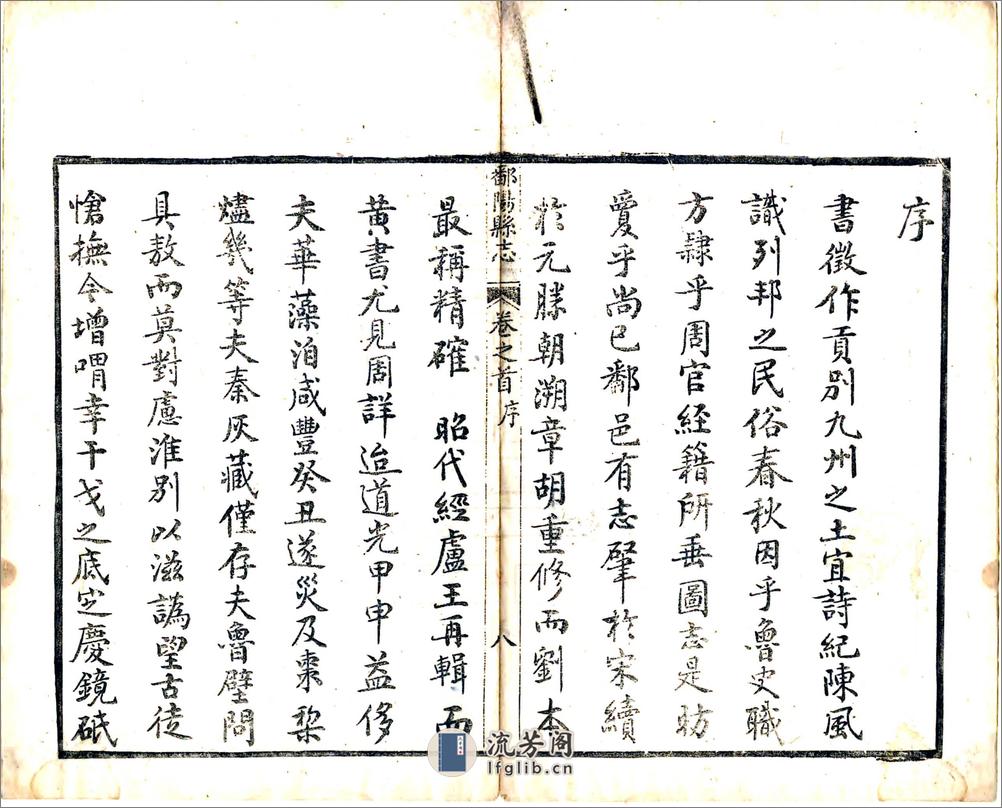 序
書徵作貢別九州之土宜詩紀陳風
識列邦之民俗春秋因乎魯史職
方隸乎周官經籍所垂圖志是昉
爰乎尚已鄱邑有志肇於宋續
於元勝朝溯章胡重修而劉本
鄱陽縣志
卷之首序
八
最稱精確 昭代經盧王再輯而
黃書尤見周詳迨道光甲申益侈
夫華藻洎咸豐癸丑遂災及棗棃
燼幾等夫秦灰藏僅存夫魯壁問
具敖而莫對慮淮別以滋譌望古徒
愴撫今增喟幸干戈之底定慶鏡砥
流芳阁
lfglib.cn